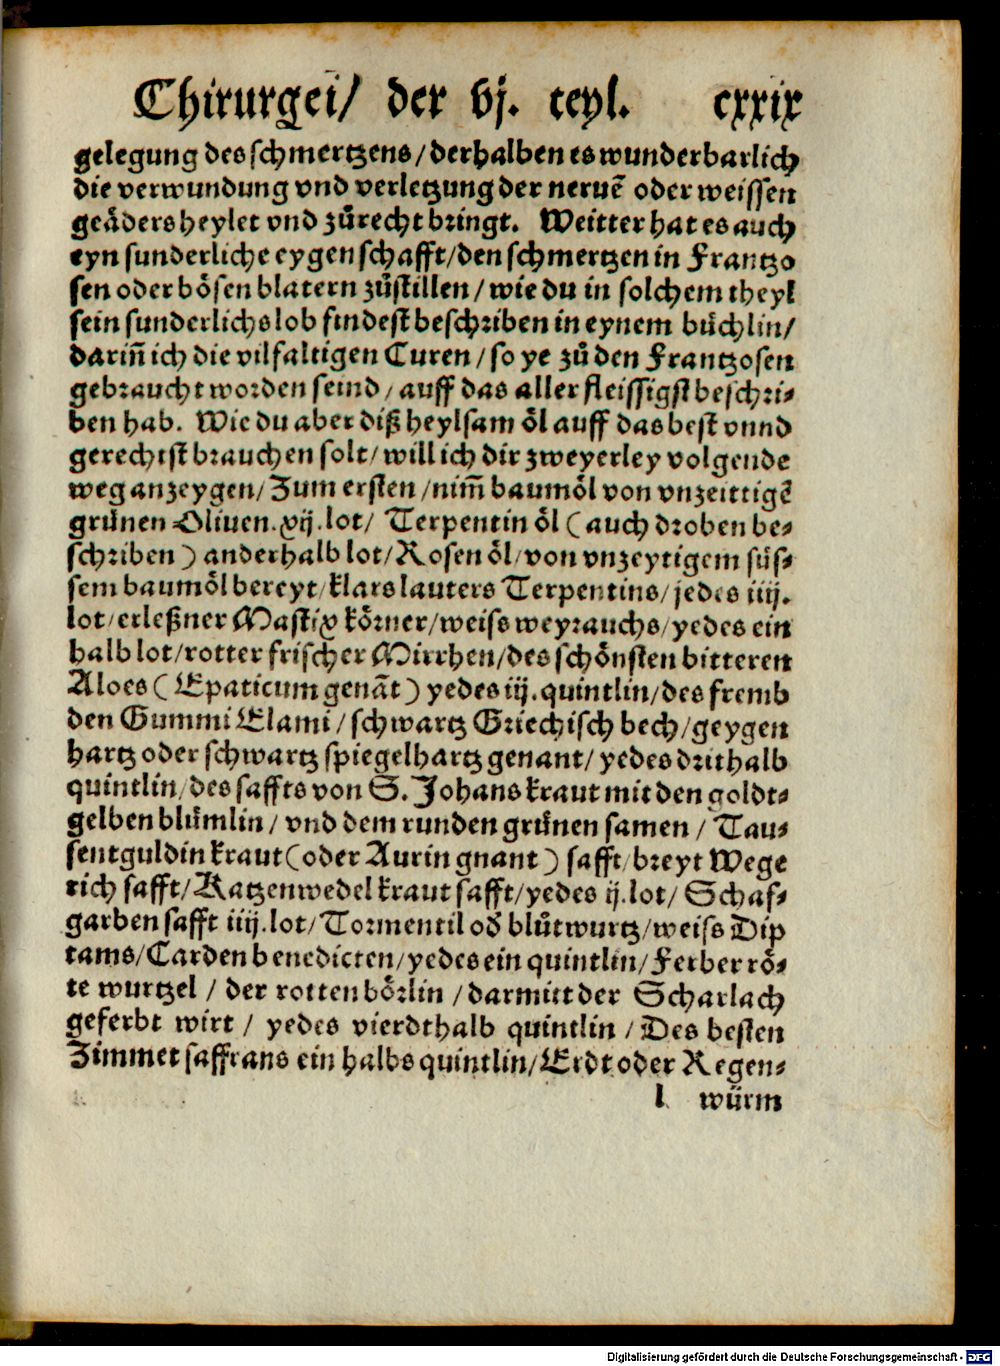 Chirurgei/ der vj. teyl. cxxix
gelegung des schmertzens/derhalben es wunderbarlich
die verwundung vnd verletzung der neruē oder weissen
geäders heylet vnd zůrecht bringt. Weitter hat es auch
eyn sunderliche eygenschafft/den schmertzen in Frantzo
sen oder bösen blatern zůstillen/wie du in solchem theyl
sein sunderlichs lob findest beschriben in eynem bůchlin/
dariñ ich die vilfaltigen Curen/so ye zů den Frantzosen
gebraucht worden seind/auff das aller fleissigst beschri-
ben hab. Wie du aber diß heylsam öl auff das best vnnd
gerechtst brauchen solt/will ich dir zweyerley volgende
weg anzeygen/Zum ersten/nim̃ baumöl von vnzeittigē
grünen Oliuen.xij.lot/ Terpentin öl (auch droben be-
schriben) anderhalb lot/Rosen öl/von vnzeytigem süs-
sem baumöl bereyt/klars lauters Terpentins/jedes iiij.
lot/erleßner Mastix körner/weiss weyrauchs/yedes ein
halb lot/rotter frischer Mirrhen/des schönsten bitteren
Aloes (Epaticum genāt) yedes iij.quintlin/des fremb
den Gummi Elami/schwartz Griechisch bech/geygen
hartz oder schwartz spiegelhartz genant/yedes drithalb
quintlin/des saffts von S. Johans kraut mit den goldt-
gelben blůmlin/vnd dem runden grünen samen/ Tau-
sentguldin kraut(oder Aurin gnant) safft/breyt Wege
rich safft/Katzenwedel kraut safft/yedes ij.lot/ Schaf-
garben safft iiij.lot/Tormentil od̕ blůtwurtz/weiss Dip
tams/Carden benedicten/yedes ein quintlin/Ferber rö-
te wurtzel/der rotten börlin/darmitt der Scharlach
geferbt wirt/ yedes vierdthalb quintlin/Des besten
Zimmet saffrans ein halbs quintlin/Erdt oder Regen-
l würm
Digitalisierung gefördert durch die Deutsche Forschungsgemeinschaft - DFG